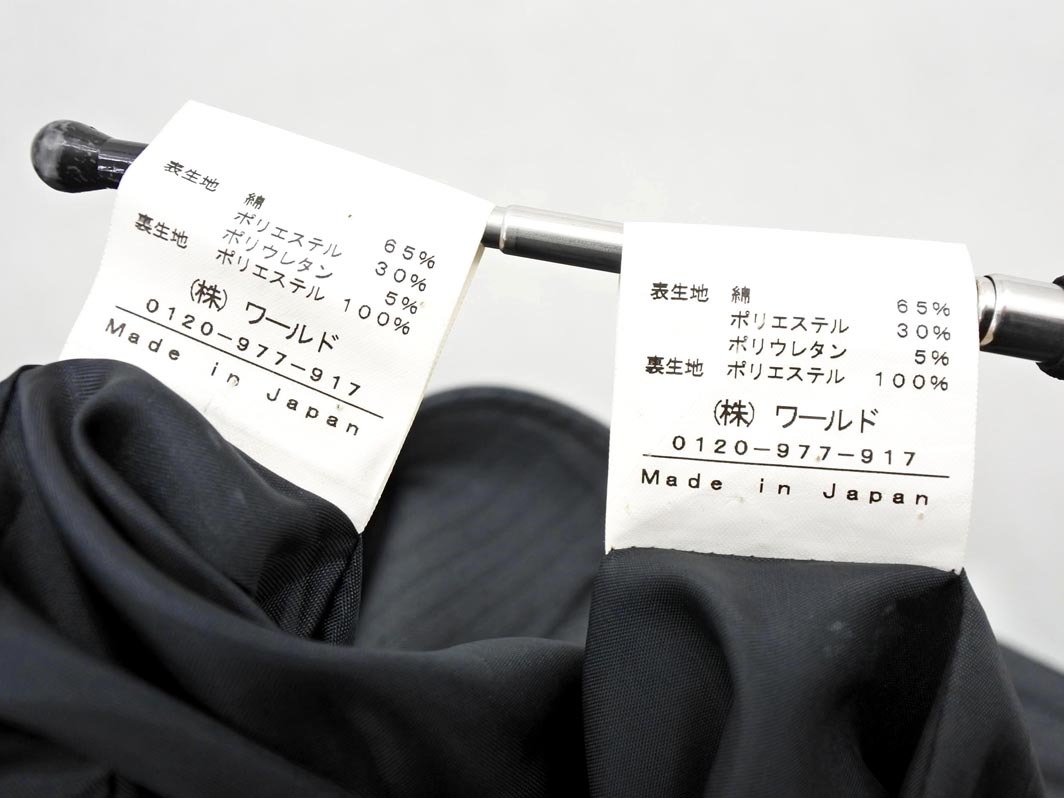 表生地 綿 65%
ポリエステル 30%
ポリウレタン 5%
裏生地 ポリエステル 100%
(株) ワールド
0120-977-917
Made in Japan
表生地 綿 65%
ポリエステル 30%
ポリウレタン 5%
裏生地 ポリエステル 100%
(株) ワールド
0120-977-917
Made in Japan